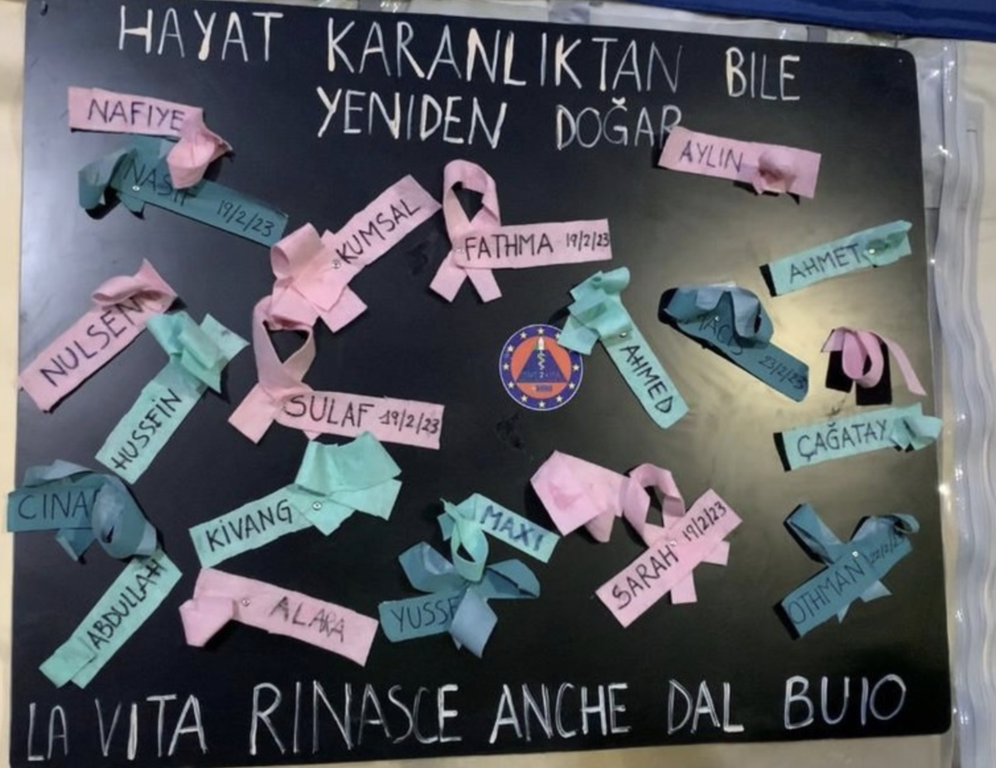 HAYAT KARANLIKTAN BILE
YENIDEN DOĞAR
NAFIYE
AYLIN
19/2/23
KUMSAL
FATHMA 19/2/23
AHMET
NULSEN
23/2/23
AHMED
HUSSEIN
SULAF 19/2/23
ÇAĞATAY
CINA
KİVANG
MAXI
SARAH 19/2/23
OTHMAN
ABDULLAH
ALARA
YUSSE
LA VITA RINASCE ANCHE DAL BUIO